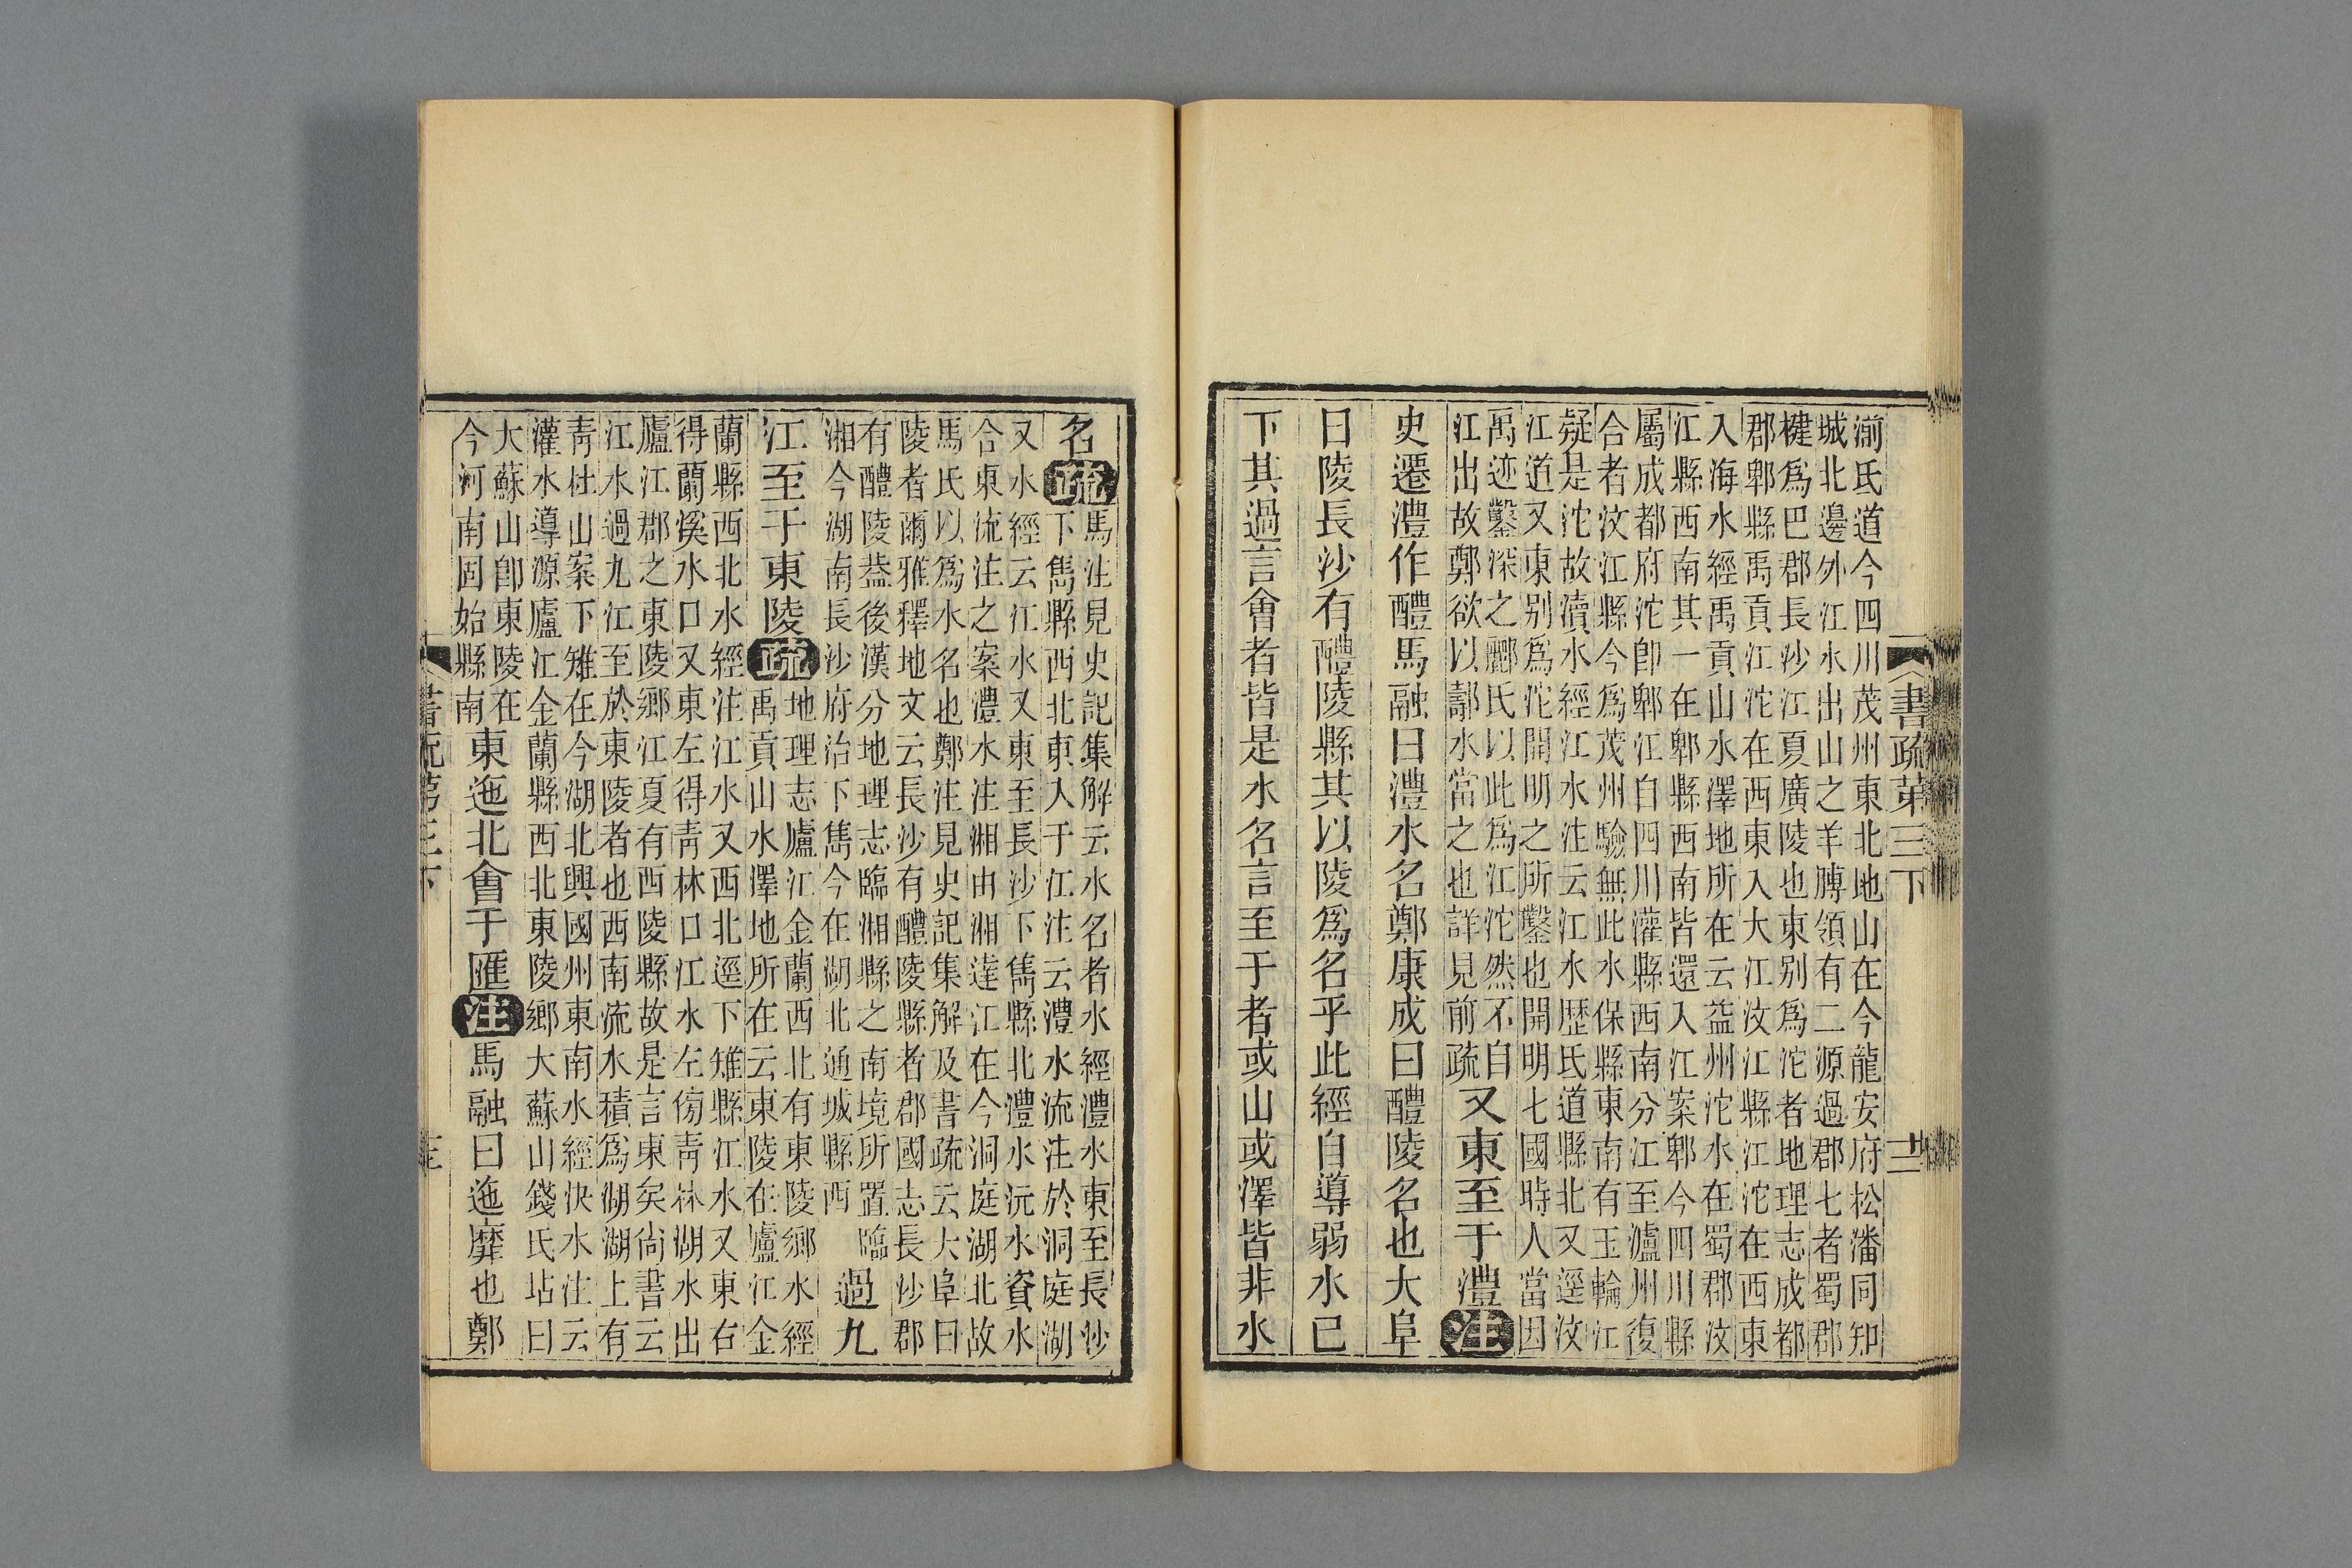 湔氐道今四川茂州東北地山在今龍安府松潘同知
城北邊外江水出山之羊膊領有二源過郡七者蜀郡
犍爲巴郡長沙江夏廣陵也東别爲沱者地理志成都
郡郫縣禹貢江沱在西東入大江汶江縣江沱在西東
入海水經禹貢山水澤地所在云益州沱水在蜀郡汶
江縣西南其一在郫縣西南皆還入江案郫今四川縣
屬成都府沱卽郫江自四川灌縣西南分江至瀘州復
合者汶江縣今爲茂州驗無此水保縣東南有玉輪江
疑是沱故瀆水經江水注云江水歷氐道縣北又逕汶
江道又東别爲沱開明之所鑿也開明七國時人當因
禹迹鑿深之酈氏以此爲江沱然不自
江出故鄭欲以鄢水當之也詳見前疏
又東至于澧注
史遷澧作醴馬融曰澧水名鄭康成曰醴陵名也大阜
曰陵長沙有醴陵縣其以陵爲名乎此經自導弱水已
下其過言會者皆是水名言至于者或山或澤皆非水
書疏第三下
名疏
馬注見史記集解云水名者水經澧水東至長沙
下雋縣西北東入于江注云澧水流注於洞庭湖
又水經云江水又東至長沙下雋縣北澧水沅水資水
合東流注之案澧水注湘由湘達江在今洞庭湖北故
馬氏以爲水名也鄭注見史記集解及書疏云大阜曰
陵者爾雅釋地文云長沙有醴陵縣者郡國志長沙郡
有醴陵葢後漢分地理志臨湘縣之南境所置臨
湘今湖南長沙府治下雋今在湖北通城縣西
過九
江至于東陵疏
地理志廬江金蘭西北有東陵鄉水經
禹貢山水澤地所在云東陵在廬江金
蘭縣西北水經注江水又西北逕下雉縣江水又東右
得蘭溪水口又東左得靑林口江水左傍靑林湖水出
廬江郡之東陵鄉江夏有西陵縣故是言東矣尙書云
江水過九江至於東陵者也西南流水積爲湖湖上有
靑杜山案下雉在今湖北興國州東南水經決水注云
灌水導源廬江金蘭縣西北東陵鄉大蘇山錢氏坫曰
大蘇山卽東陵在
今河南固始縣南
東迤北會于匯注馬融曰迤靡也鄭